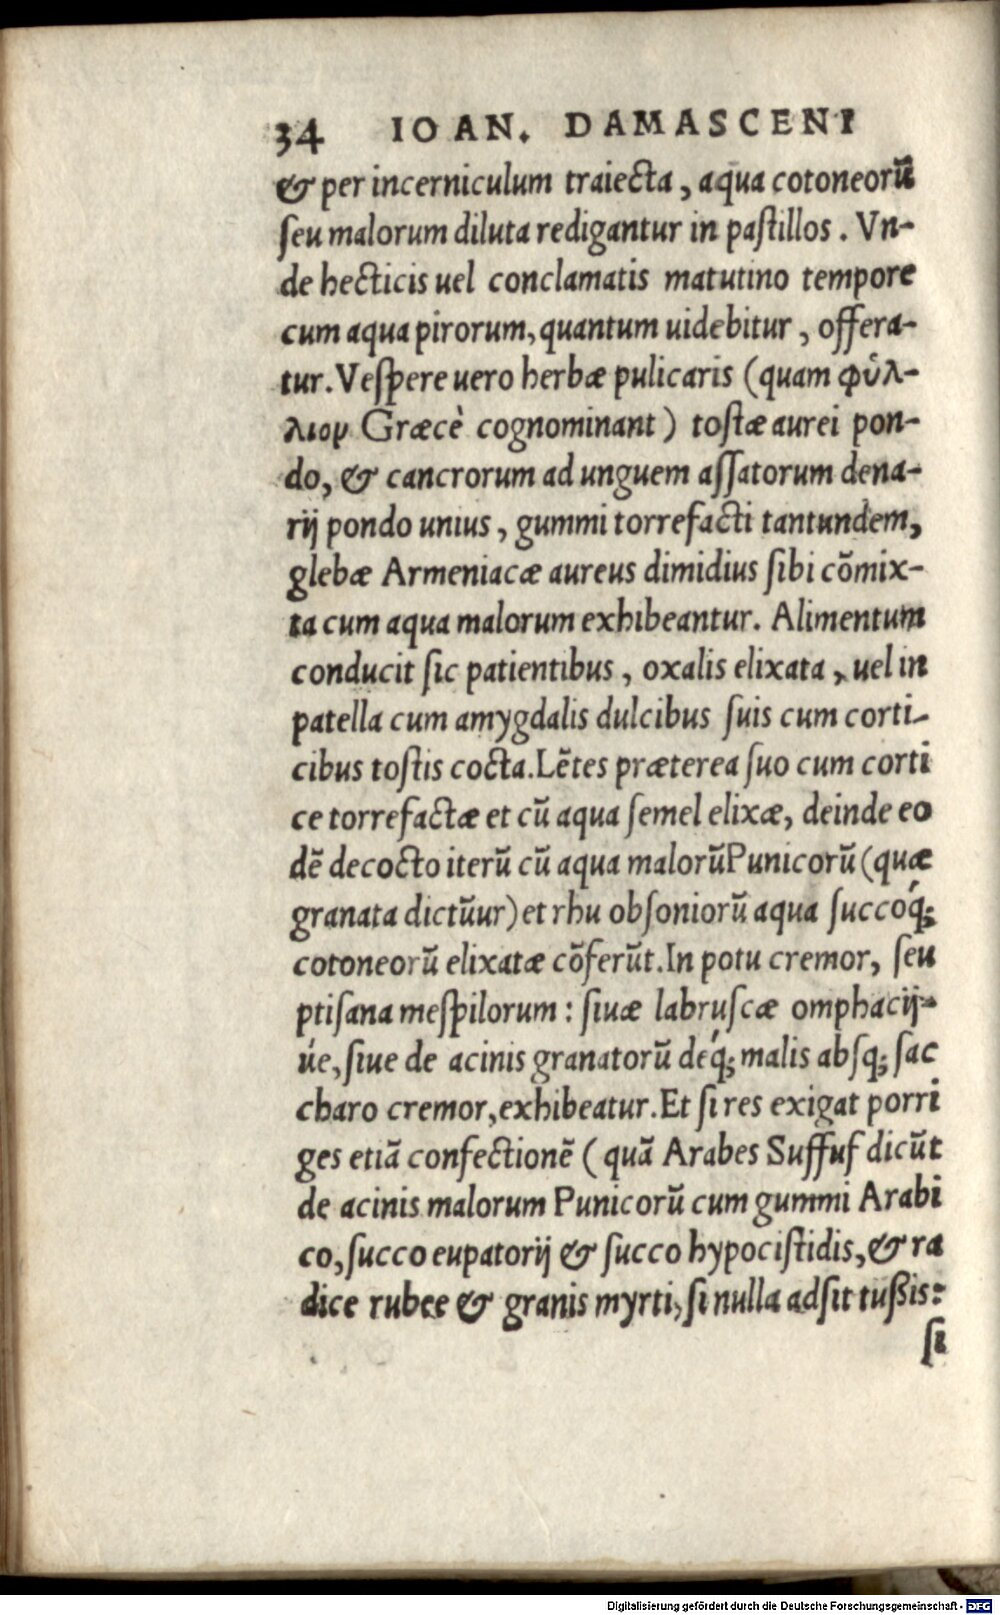 34 IOAN. DAMASCENI
& per incerniculum traiecta, aqua cotoneorũ
ſeu malorum diluta redigantur in paſtillos. Vn-
de hecticis uel conclamatis matutino tempore
cum aqua pirorum, quantum uidebitur, offera-
tur. Veſpere uero herbæ pulicaris (quam φύλ-
λιον Græcè cognominant) toſtæ aurei pon-
do, & cancrorum ad unguem aſſatorum dena-
rij pondo unius, gummi torrefacti tantundem,
glebæ Armeniacæ aureus dimidius ſibi cõmix-
ta cum aqua malorum exhibeantur. Alimentum
conducit ſic patientibus, oxalis elixata, uel in
patella cum amygdalis dulcibus ſuis cum corti-
cibus toſtis cocta. Lẽtes præterea ſuo cum corti
ce torrefactæ et cũ aqua ſemel elixæ, deinde eo
dẽ decocto iterũ cũ aqua malorũ Punicorũ (quæ
granata dictũur) et rhu obſoniorũ aqua ſuccoq́;
cotoneorũ elixatæ cõferũt. In potu cremor, ſeu
ptiſana meſpilorum: ſiuæ labruſcæ omphacij-
úe, ſiue de acinis granatorũ deq́; malis abſq; ſac
charo cremor, exhibeatur. Et ſi res exigat porri
ges etiã confectionẽ (quã Arabes Suffuf dicũt
de acinis malorum Punicorũ cum gummi Arabi
co, ſucco eupatorij & ſucco hypociſtidis, & ra
dice rubee & granis myrti, ſi nulla adſit tußis:
ſi
Digitalisierung gefördert durch die Deutsche Forschungsgemeinschaft - DFG